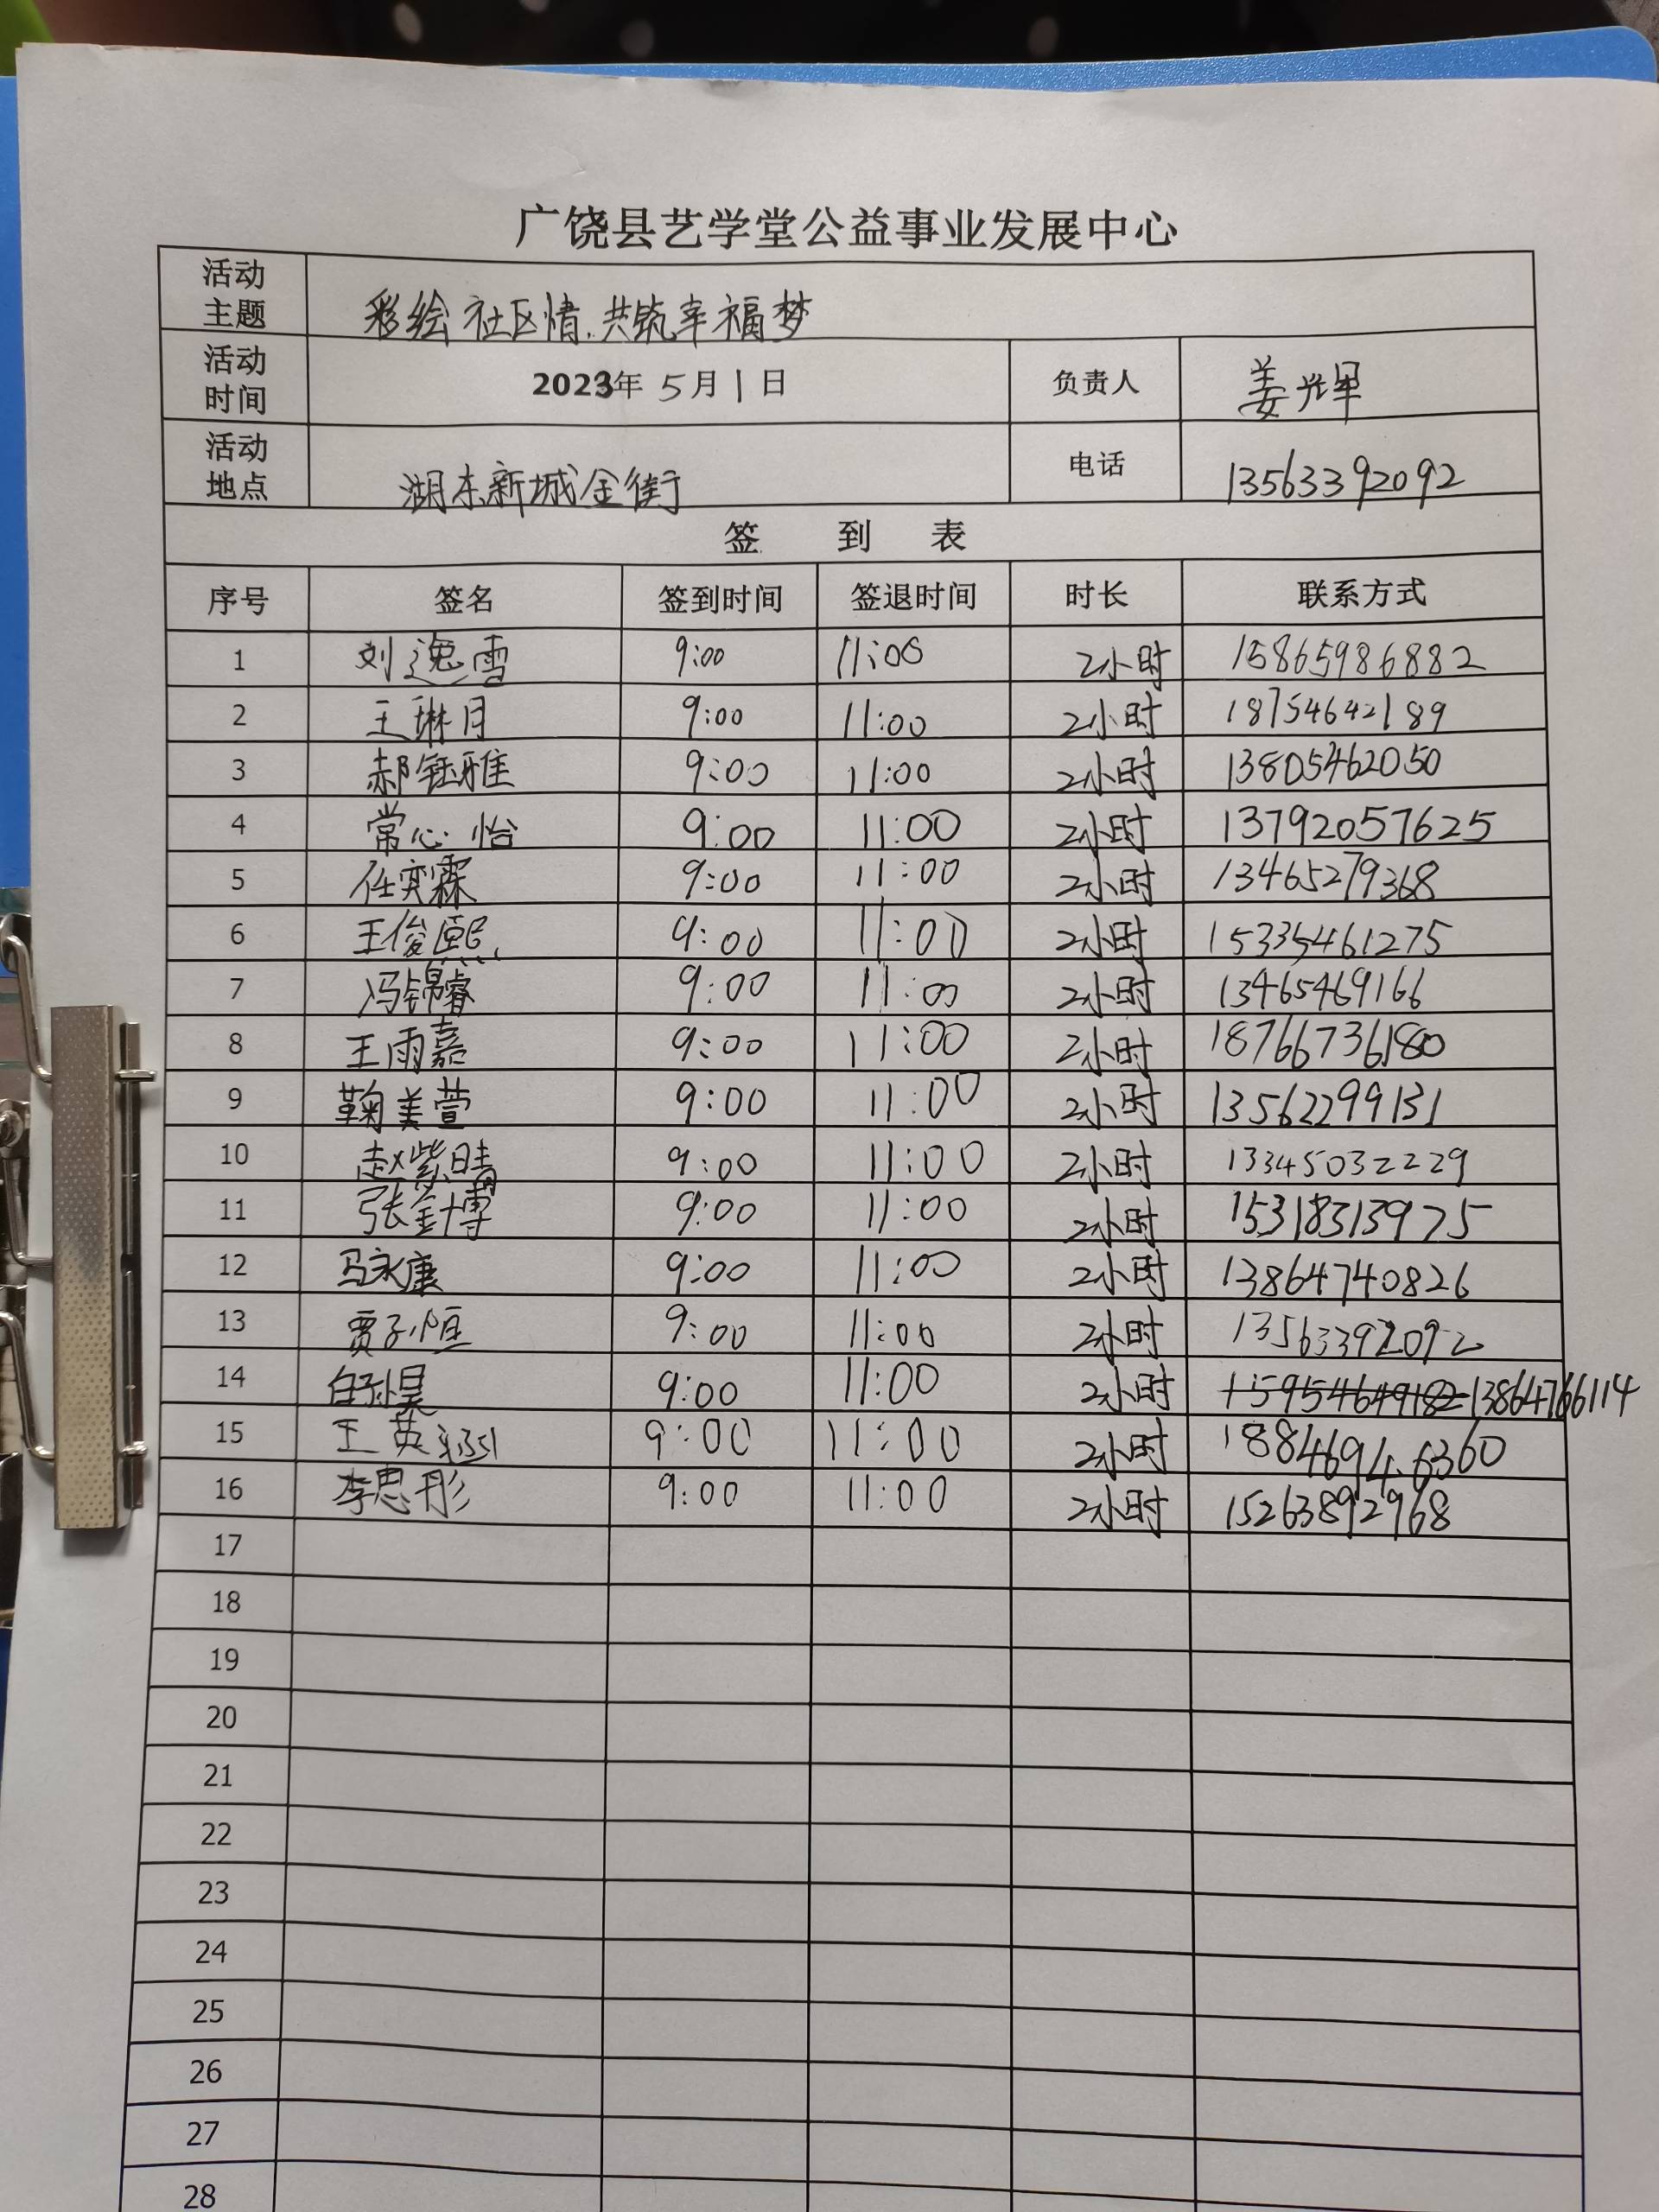 广饶县艺学堂公益事业发展中心
活动主题 彩绘社区情.共筑幸福梦
活动时间 2023年 5月1日 负责人 姜光军
活动地点 湖东新城金街 电话 13563392092
签 到 表
序号 签名 签到时间 签退时间 时长 联系方式
1 刘逸雪 9:00 11:00 2小时 15865986882
2 王琳月 9:00 11:00 2小时 18754642189
3 郝钰雅 9:00 11:00 2小时 13805462050
4 常心怡 9:00 11:00 2小时 13792057625
5 任奕霖 9:00 11:00 2小时 13465279368
6 王俊熙 9:00 11:00 2小时 15335461275
7 冯锦睿 9:00 11:00 2小时 13465469166
8 王雨嘉 9:00 11:00 2小时 18766736180
9 鞠美萱 9:00 11:00 2小时 13562299131
10 赵紫晴 9:00 11:00 2小时 13345032229
11 张金博 9:00 11:00 2小时 15318313975
12 马永康 9:00 11:00 2小时 13864740826
13 贾子恒 9:00 11:00 2小时 13563392092
14 9:00 11:00 2小时 15954649182 13864766114
15 王英涵 9:00 11:00 2小时 18846946360
16 李思彤 9:00 11:00 2小时 15263892968
17
18
19
20
21
22
23
24
25
26
27
28